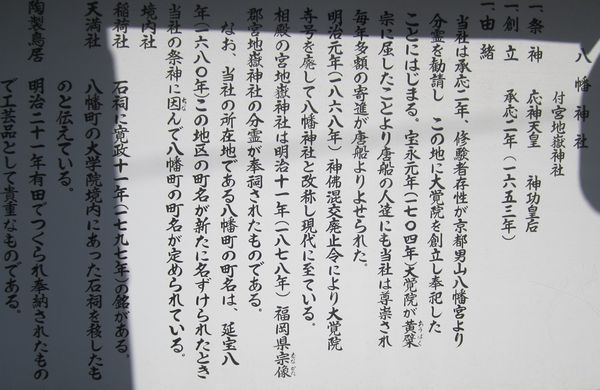 八幡神社
付宮地嶽神社
一、祭神 応神天皇 神功皇后
一、創立 承応二年(一六五三年)
一、由緒
当社は承応二年、修験者存性が京都男山八幡宮より
分霊を勧請し この地に大覚院を創立し奉祀した
ことにはじまる。宝永元年(一七〇四年)大覚院が黄檗
おうばく
宗に属したことより唐船の人達にも当社は尊崇され
毎年多額の寄進が唐船よりよせられた。
明治元年(一八六八年)神佛混交廃止令により大覚院
寺号を廃して八幡神社と改称し現代に至ている。
相殿の宮地嶽神社は明治十一年(一八七八年)福岡県宗像
むなかた
郡宮地嶽神社の分霊が奉祠されたものである。
なお、当社の所在地である八幡町の町名は、延宝八
年(一六八〇年)この地区の町名が新たに名ずけられたとき
当社の祭神に因んで八幡町の町名が定められている。
ちな
境内社
稲荷社 石祠に寛政十一年(一七九七年)の銘がある。
天満社 八幡町の大学院境内にあった石祠を移したも
のと伝えている。
陶製鳥居 明治二十一年有田でつくられ奉納されたもの
で工芸品として貴重なものである。